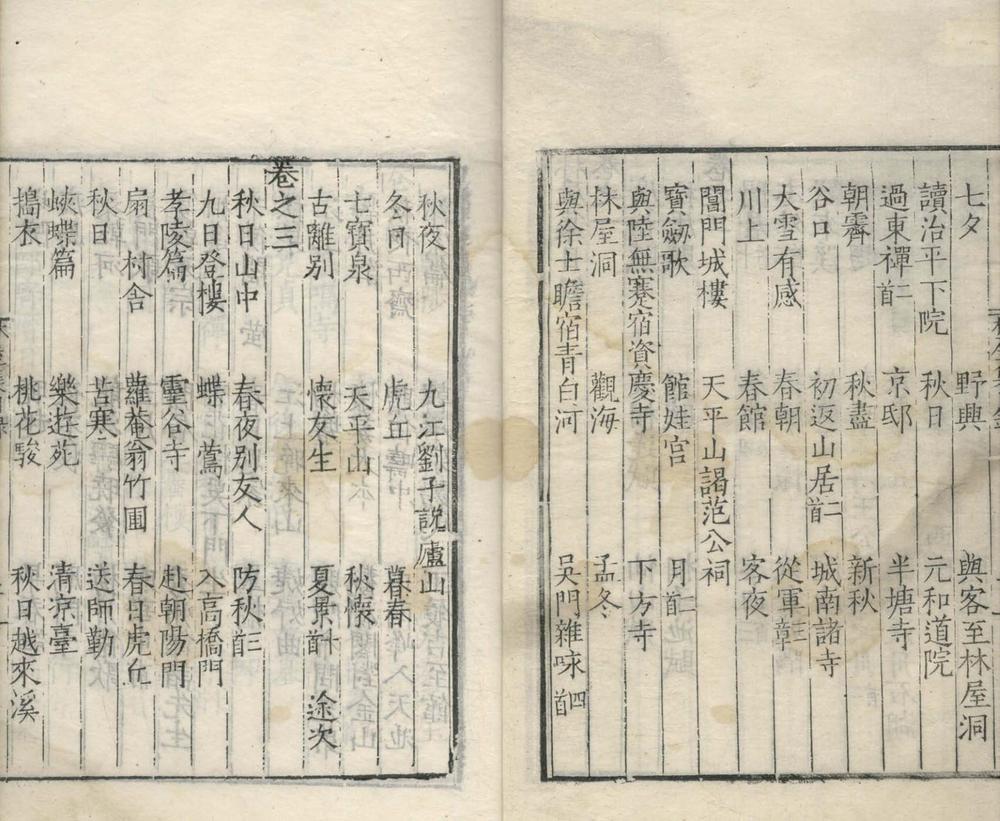 七夕 野興 與客至林屋洞
讀治平下院 秋日 元和道院
過東禪二首 京邸 半塘寺
朝霽 秋盡 新秋
谷口 初返山居二首 城南諸寺
大雪有感 春朝 從軍三章
川上 春館 客夜
閶門城樓 天平山謁范公祠
寶劔歌 館娃宮 月二首
與陸無蹇宿資慶寺 下方寺
林屋洞 觀海 孟冬
與徐士瞻宿青白河 吳門雜咏四首
秋夜 九江劉子說廬山
冬日西齋 虎丘 暮春
七寶泉 天平山 秋懷
古離別 懷友生 夏景十首 途次
卷之三
秋日山中 春夜別友人 防秋三首
九日登樓 蝶 鶯 入高橋門
孝陵篇 靈谷寺 赴朝陽門
扇 村舍 蘿菴翁竹圃 春日虎丘
秋日 苦寒 送師勤
峽蝶篇 樂遊苑 清凉臺
搗衣 桃花駿 秋日越來溪